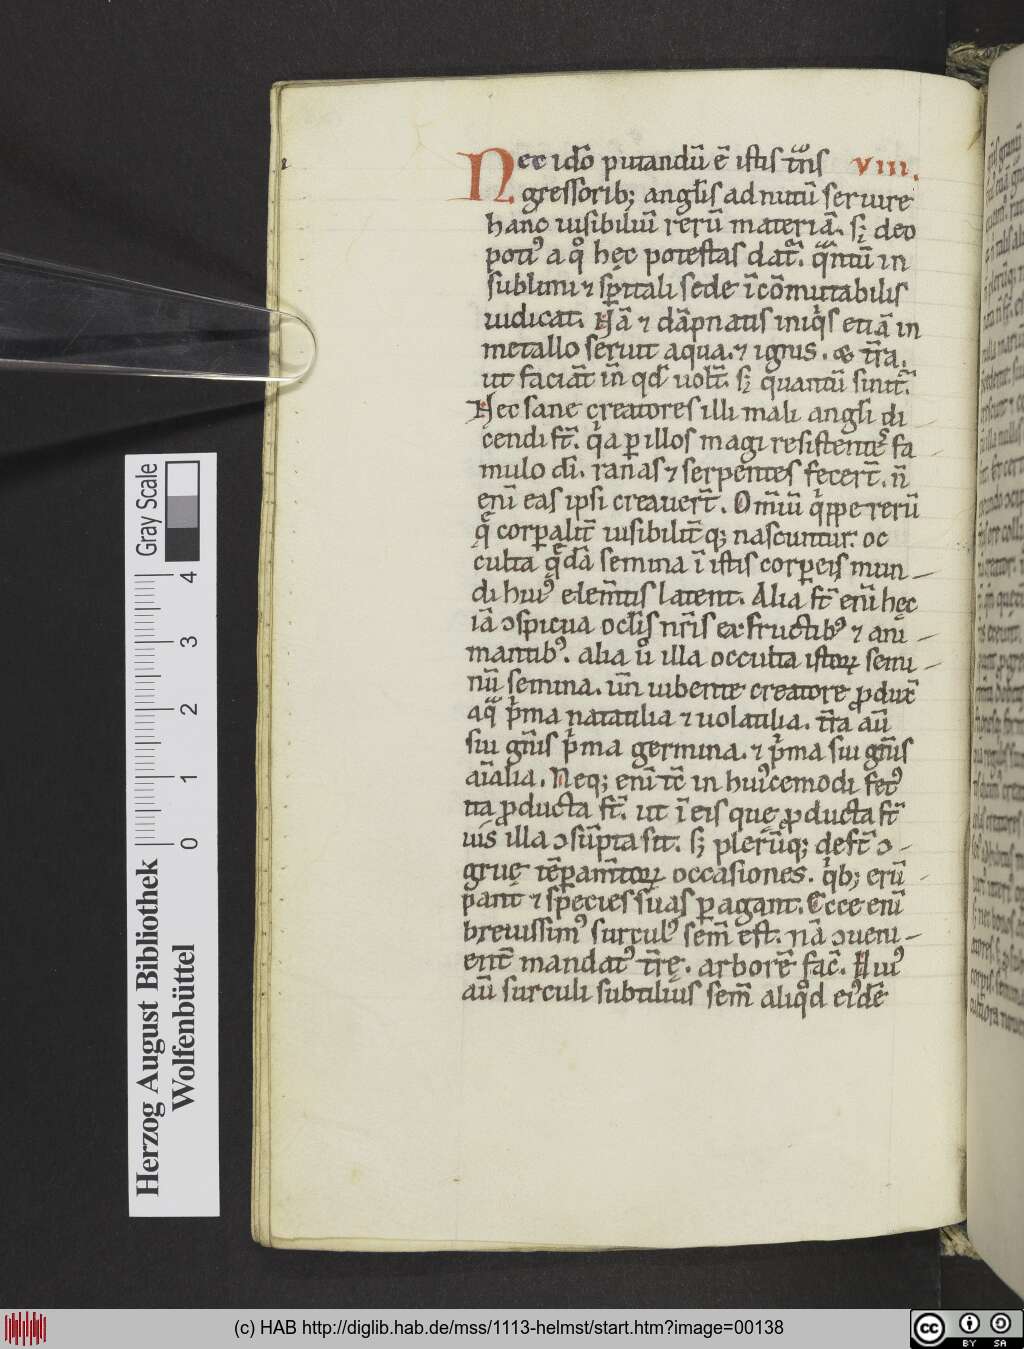 Nec idō putandū ē istis tn̄s VIII.
gressorib; angl̄is ad nutū seruire
hanc uisibiliū rerū materiā. s; deo
poti᷒ a qͦ hec potestas dat᷑. qͣntū in
sublimi ⁊ spͥitali sede īcōmutabilis
iudicat. Nā ⁊ dāpnatis iniqͥs etiā in
metallo seruit aqua. ⁊ ignis. & tr̄a.
ut faciāt in̄ qd̄ uolt̄. s; quantū sinit᷑.
Hec sane creatores illi mali angl̄i di
cendi st̄. qͥa ꝑ illos magi resistentes fa
mulo dī. ranas ⁊ serpentes fecert̄. n̄
enī eas ipsi creauert̄. Om̄iū qͥppe rerū
q̄ corꝑalit̄ uisibilit̄q; nascuntur. oc
culta q̄dā semina ī istis corꝑeis mun
di hui᷒ elem̄tis latent. Alia st̄ enī hęc
iā ɔspicua ocl̄is nr̄is ex fructib᷒ ⁊ ani
mantib᷒. alia uͦ illa occulta istoꝝ semi
nū semina. un̄ iubente creatore ꝓdux̄
aqͣ pͥma natatilia ⁊ uolatilia. tr̄a aū
sui gn̄is pͥma germina. ⁊ pͥma sui gn̄is
aīalia. Neq; enī tc̄ in hui᷒cemodi fet᷒
ita ꝓducta st̄. ut ī eis quę ꝓducta st̄
uis illa ɔsūpta sit. s; plerūq; dest̄ ɔ
gruę tēꝑam̄toꝝ occasiones. qͥb; erū
pant ⁊ species suas ꝑagant. Ecce enī
breuissim᷒ surcul᷒ sem̄ est. nā ɔueni
ent̄ mandat᷒ tr̄ę. arborē fac̄. Hui᷒
aū surculi subtilius sem̄ aliqͦd ei᷒dē
Herzog August Bibliothek
Wolfenbüttel
0 1 2 3 4
Gray Scale
(c) HAB http://diglib.hab.de/mss/1113-helmst/start.htm?image=00138
cc BY SA